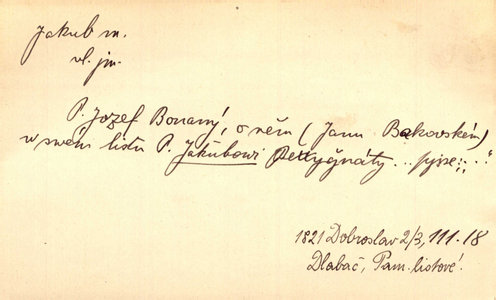 Jakub m.
vl. jm.
P. Jozef Bonaný, o něm (Janu Bakovském)
w swém listu P. Jakubowi Bettygnáty .. pjse: „..."
1821 Dobroslav 2/3, 111.18
Dlabač, Pam. listové!